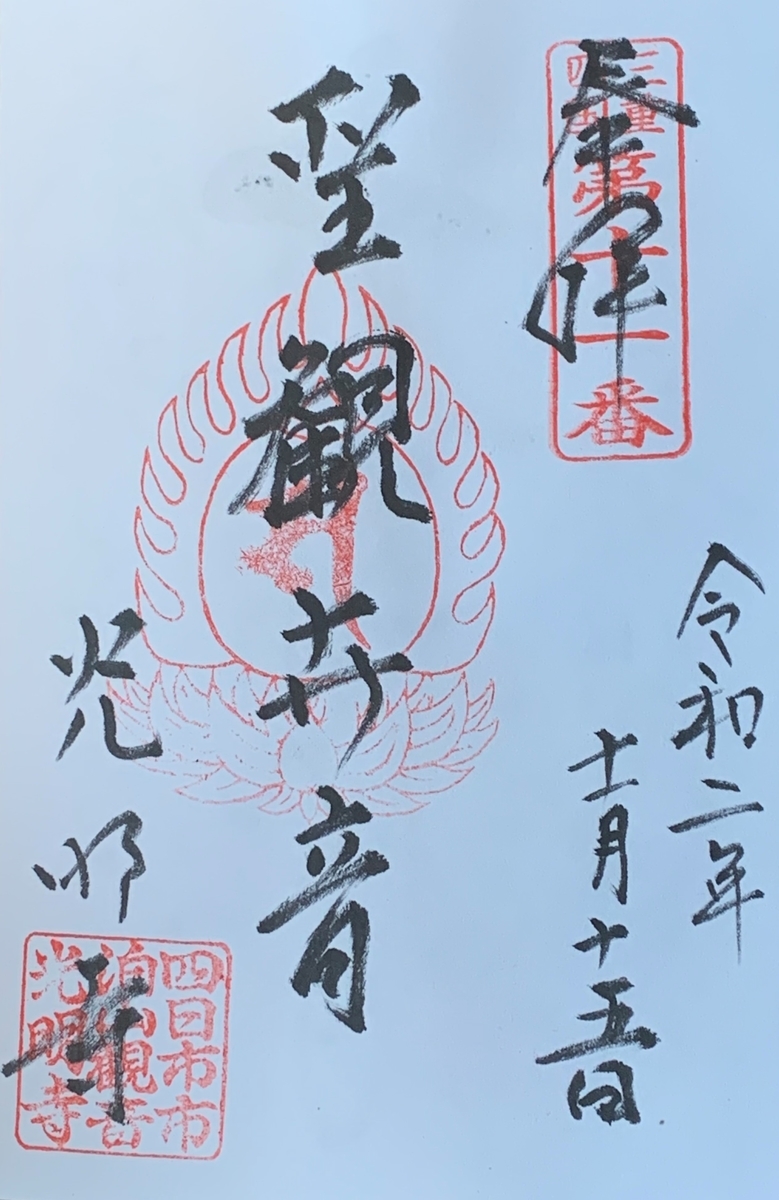 奉拝
三重
四国
第十一番
令和二年
十一月十五日
聖観世音
光明寺
四日市市
泊山観音
光明寺